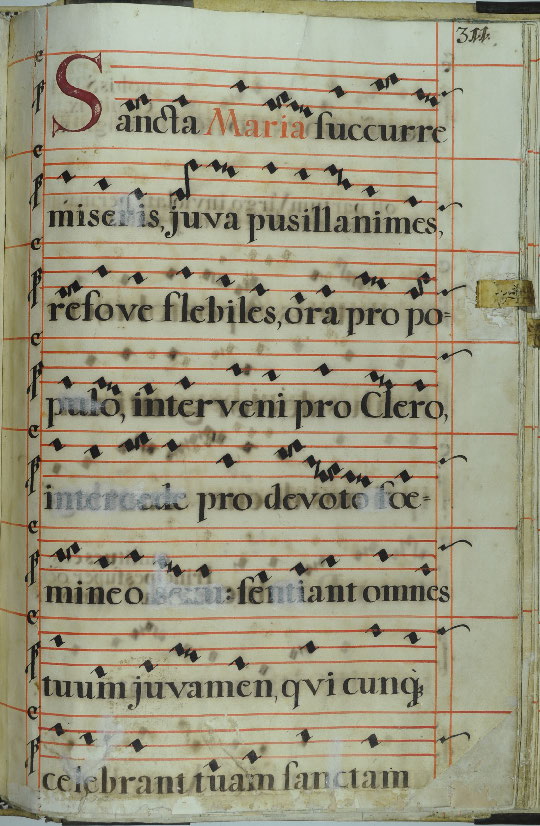 311.
Sancta Maria succurre
miseris, juva pusillanimes,
refove flebiles, ora pro po=
pulo, interveni pro Clero,
intercede pro devoto foe=
mineo sexu: sentiant omnes
tuum juvamen, qvi cunq;
celebrant tuam sanctam